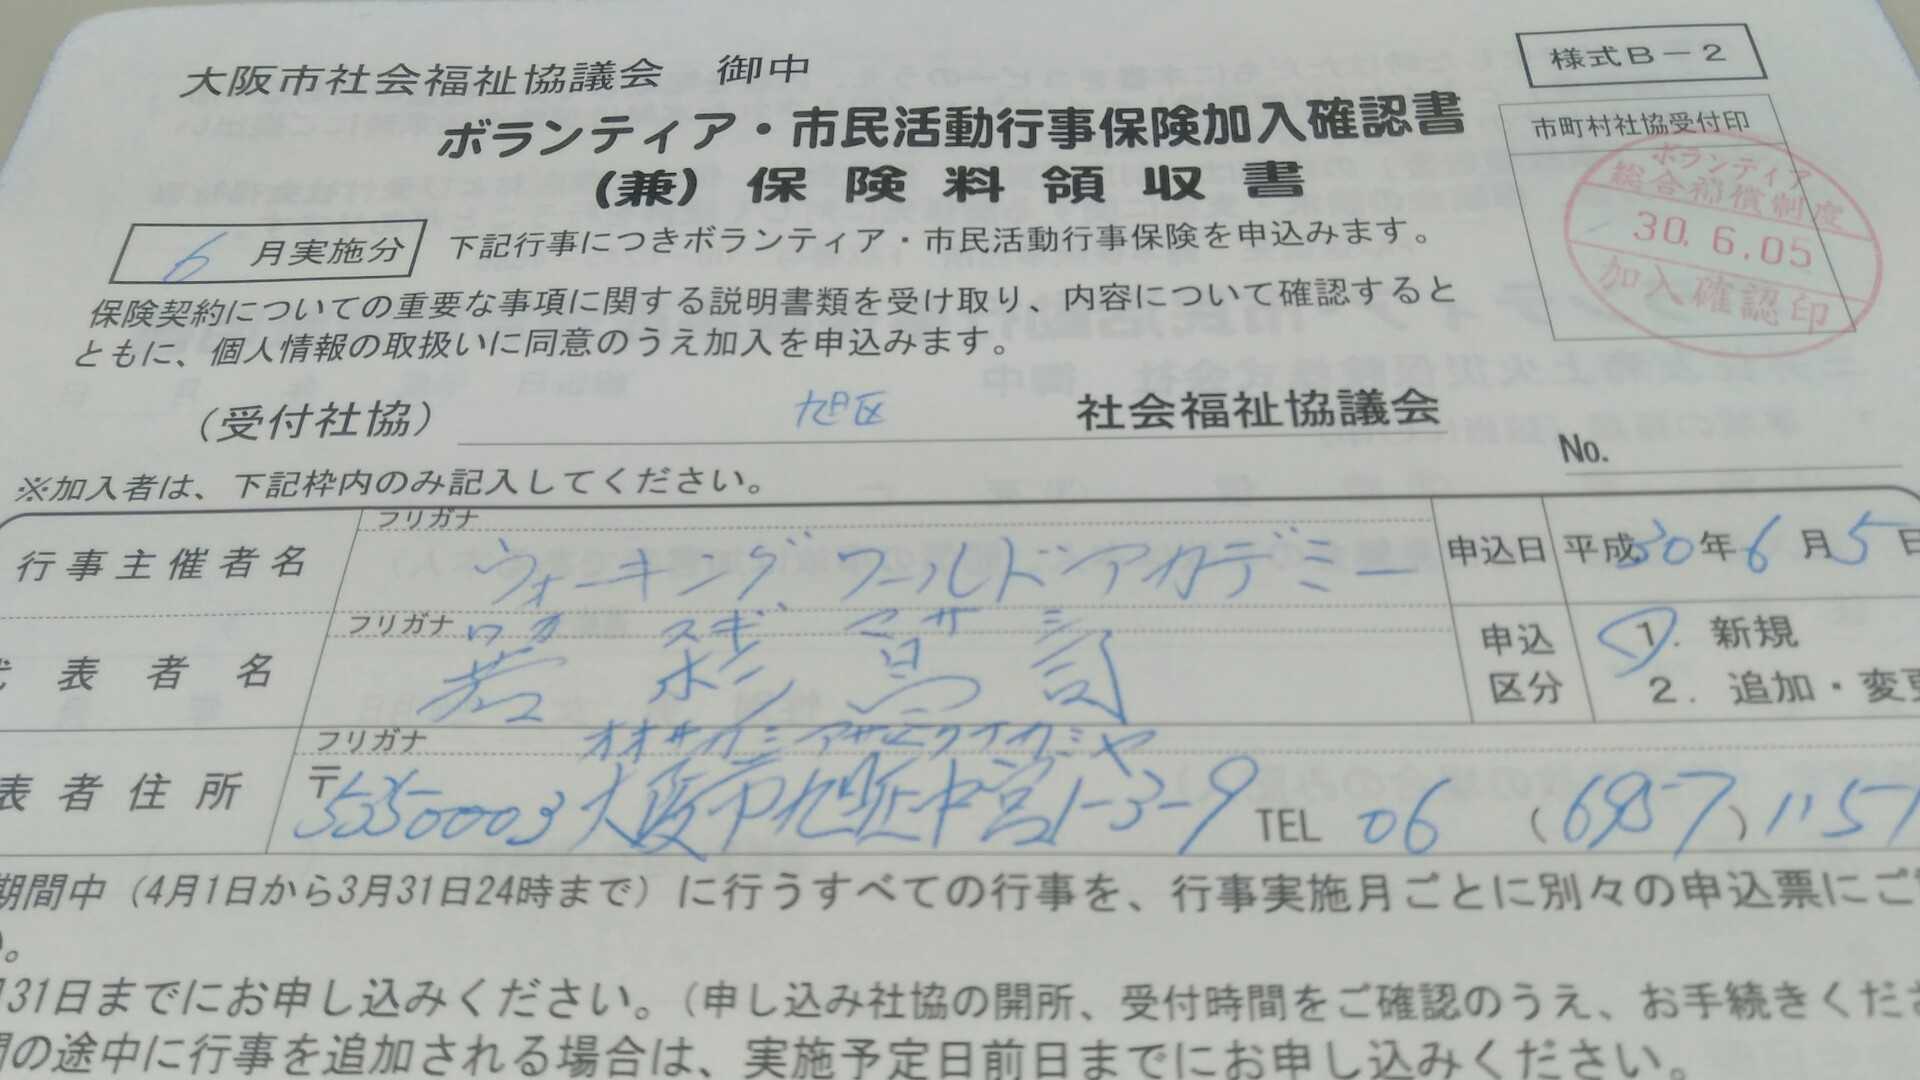 様式B－2
大阪市社会福祉協議会 御中
ボランティア・市民活動行事保険加入確認書
(兼) 保険料領収書
市町村社協受付印
ボランティア
総合補償制度
30.6.05
加入確認印
6 月実施分 下記行事につきボランティア・市民活動行事保険を申込みます。
保険契約についての重要な事項に関する説明書類を受け取り、内容について確認すると
ともに、個人情報の取扱いに同意のうえ加入を申込みます。
(受付社協) 旭区 社会福祉協議会
No.
※加入者は、下記枠内のみ記入してください。
行事主催者名 フリガナ ウォーキングワールドアカデミー 申込日 平成30年6月5日
代表者名 フリガナ ワカ スギ マサ シ
若杉 司
申込区分 1. 新規
2. 追加・変更
表者住所 フリガナ オオサカシアサヒク ミヤ
〒5350003 大阪市旭区中宮1-3-9 TEL 06 (6957) 1157
期間中（4月1日から3月31日24時まで）に行うすべての行事を、行事実施月ごとに別々の申込票にご
い。
月31日までにお申し込みください。(申し込み社協の開所、受付時間をご確認のうえ、お手続きくださ
間の途中に行事を追加される場合は、実施予定日前日までにお申し込みください。